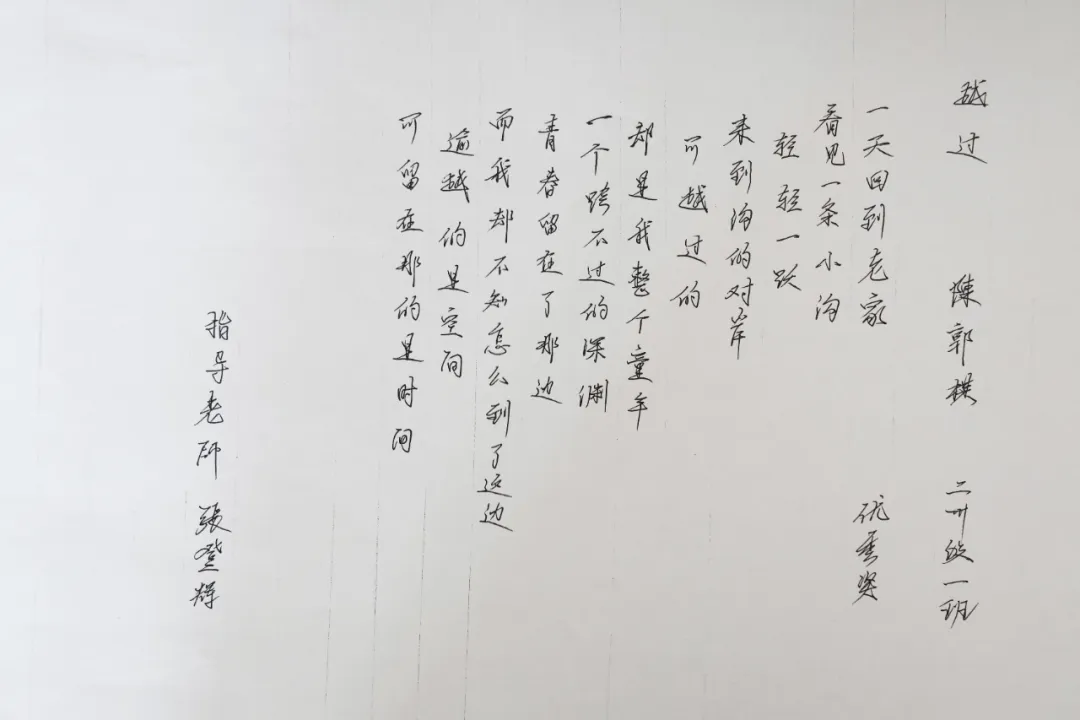 越过 陳郭棋 二卅级一班
优秀奖
一天回到老家
看见一条小沟
轻轻一跃
来到沟的对岸
可越过的
却是我整个童年
一个跨不过的深渊
青春留在了那边
而我却不知怎么到了这边
逾越的是空间
可留在那的是时间
指导老师 張登辉